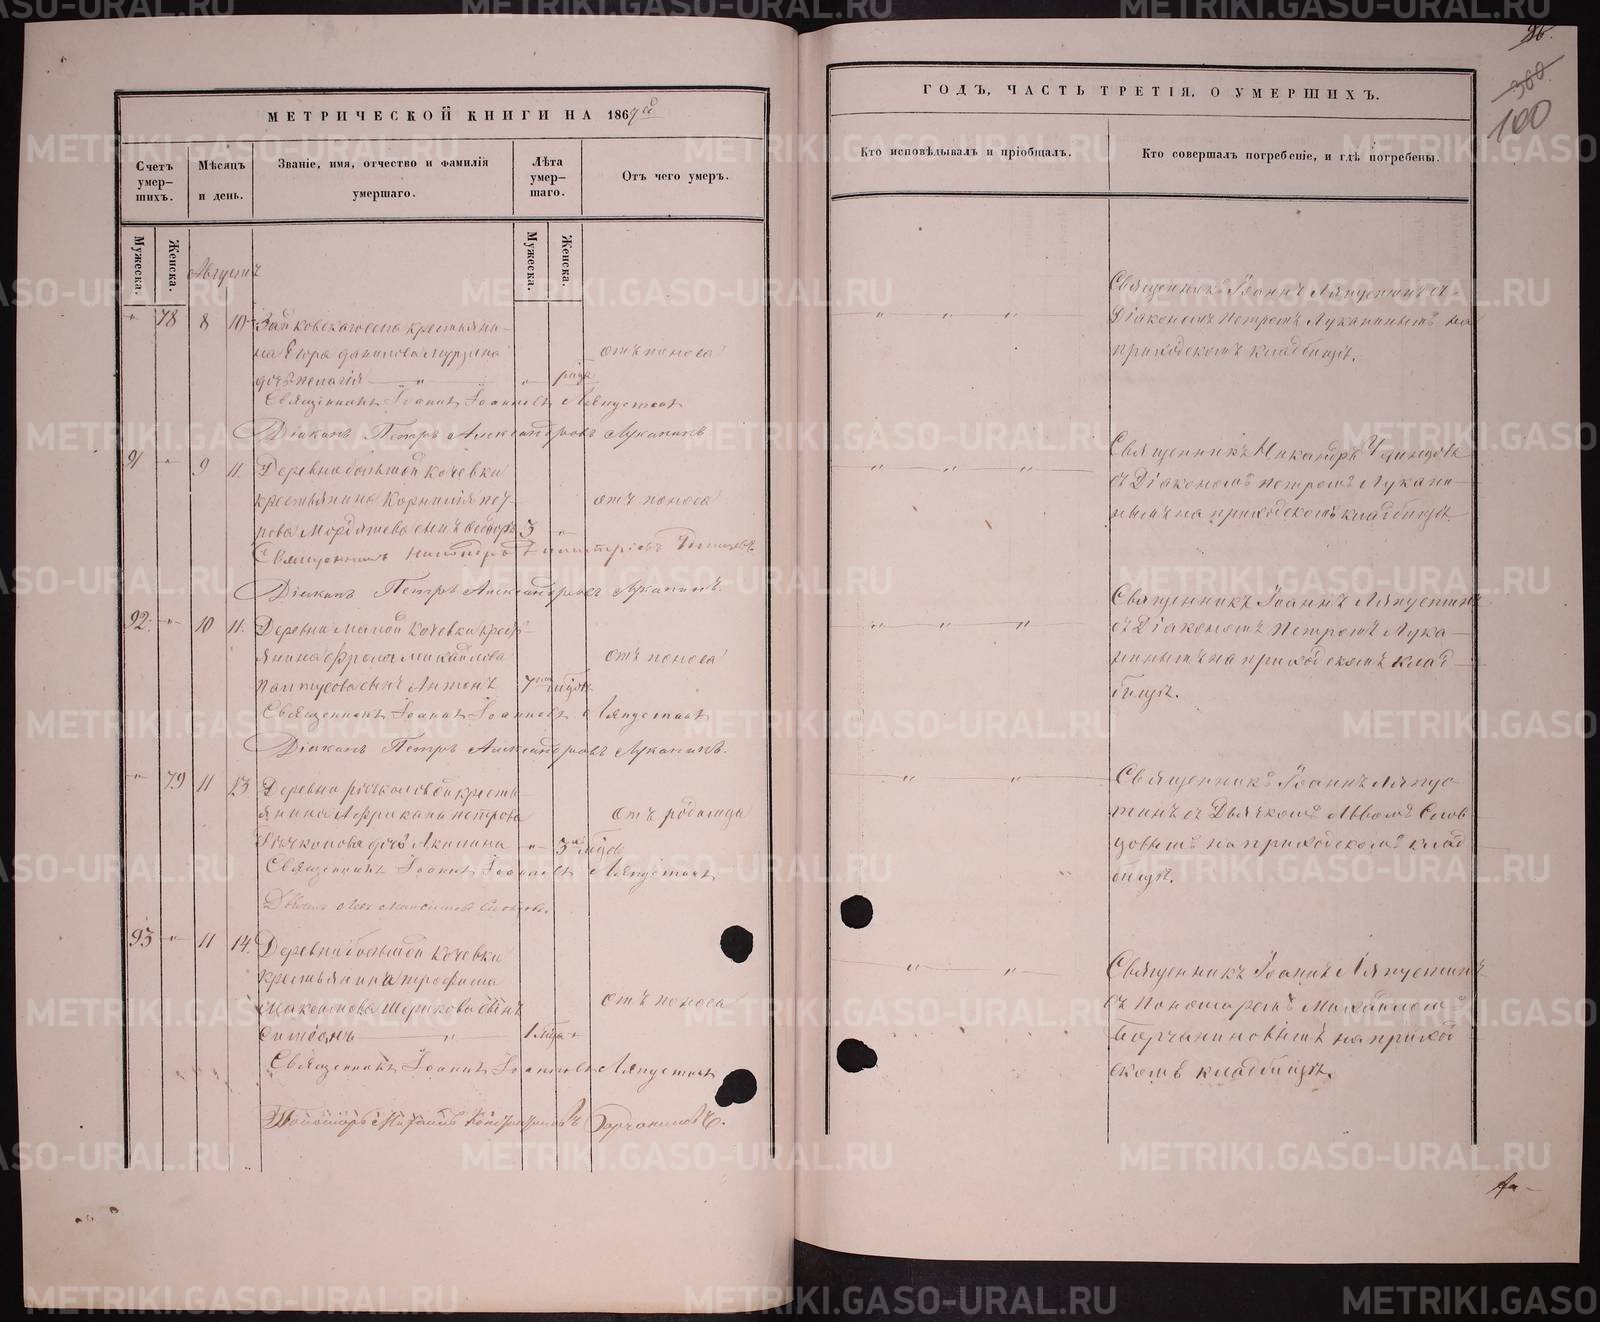 МЕТРИЧЕСКОЙ КНИГИ НА 1867й
Счетъ умер-шихъ.
Мѣсяцъ и день.
Званіе, имя, отчество и фамилія умершаго.
Лѣта умер-шаго.
Отъ чего умеръ.
Мужеска.
Женска.
Мужеска.
Женска.
Августъ
78 8 10
Зайковскаго села крестьяни-
на Егора Данилова
дочь Пелагія
отъ поноса
Священникъ Іоаннъ Іоанновъ Ляпустинъ
Діаконъ Петръ Александровъ Луканинъ
91 9 11.
Деревни большой Кочевки
крестьянина Корнилія Пет-
рова сынъ Ѳедоръ 3
отъ поноса
Священникъ Никандръ Димитріевъ
Діаконъ Петръ Александровъ Луканинъ.
92. 10 11.
Деревни малой Кочевки кресть-
янина Фрола Михайлова
сынъ Антонъ 7
отъ поноса
Священникъ Іоаннъ Іоанновъ Ляпустинъ
Діаконъ Петръ Александровъ Луканинъ.
79 11 13
Деревни Речкаловой кресть-
янина Африкана Петрова
Речкалова дочь Акилина 3
отъ родимца
Священникъ Іоаннъ Іоанновъ Ляпустинъ
93 11 14.
Деревни большой Кочевки
крестьянина Трофима
сынъ
Симеонъ 1
отъ поноса
Священникъ Іоаннъ Іоанновъ Ляпустинъ
Пономарь Михаилъ Борчаниновъ.
ГОДЪ, ЧАСТЬ ТРЕТІЯ, О УМЕРШИХЪ.
100
Кто исповѣдывалъ и пріобщалъ.
Кто совершалъ погребеніе, и гдѣ погребены.
Священникъ Іоаннъ Ляпустинъ съ
Діакономъ Петромъ Луканинымъ на
приходскомъ кладбищѣ.
Священникъ Никандръ
съ Діакономъ Петромъ Лукани-
нымъ на приходскомъ кладбищѣ
Священникъ Іоаннъ Ляпустинъ
съ Діакономъ Петромъ Лука-
нинымъ на приходскомъ клад-
бищѣ.
Священникъ Іоаннъ Ляпус-
тинъ съ Дьячкомъ Львомъ Слов-
цовымъ на приходскомъ клад-
бищѣ.
Священникъ Іоаннъ Ляпустинъ
съ Пономаремъ Михаиломъ
Борчаниновымъ на приход-
скомъ кладбищѣ.
METRIKI.GASO-URAL.RU